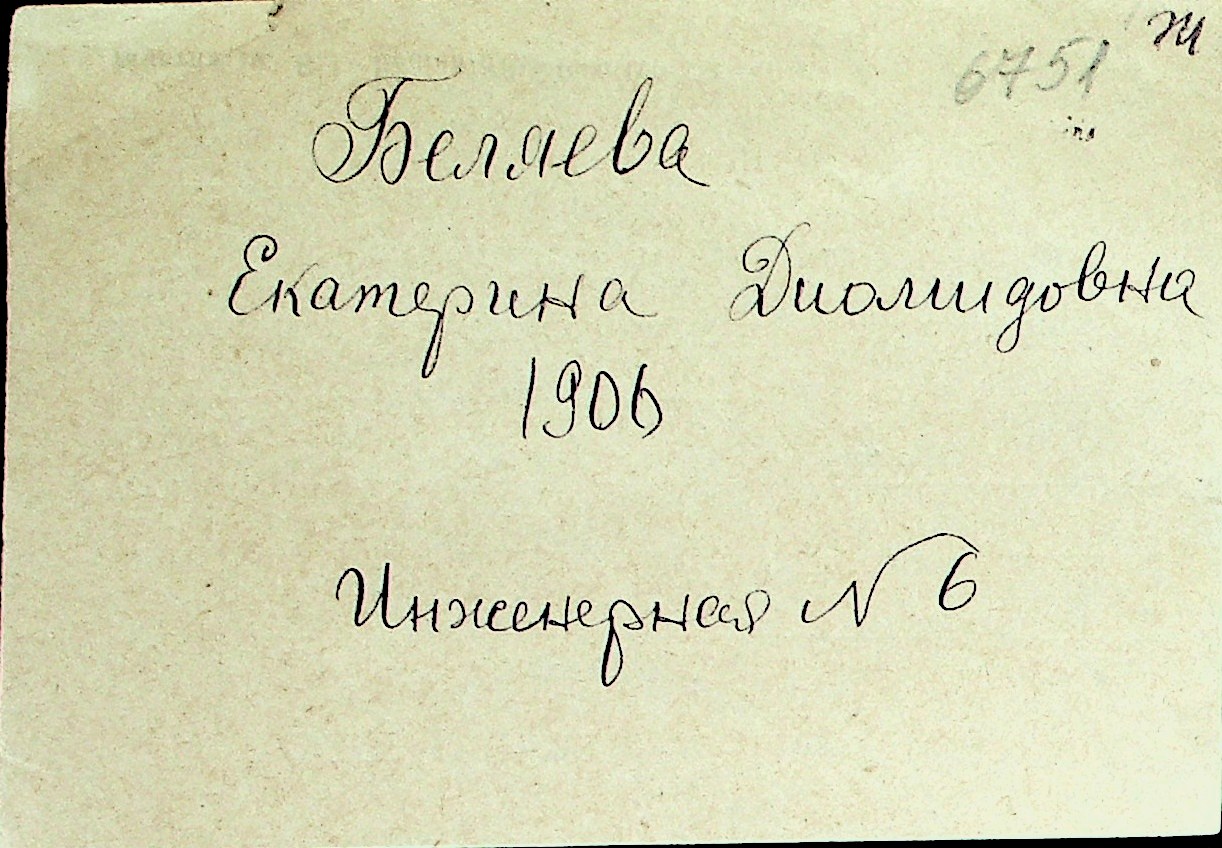 6751
Беляева
Екатерина Диомидовна
1906
Инженерная № 6